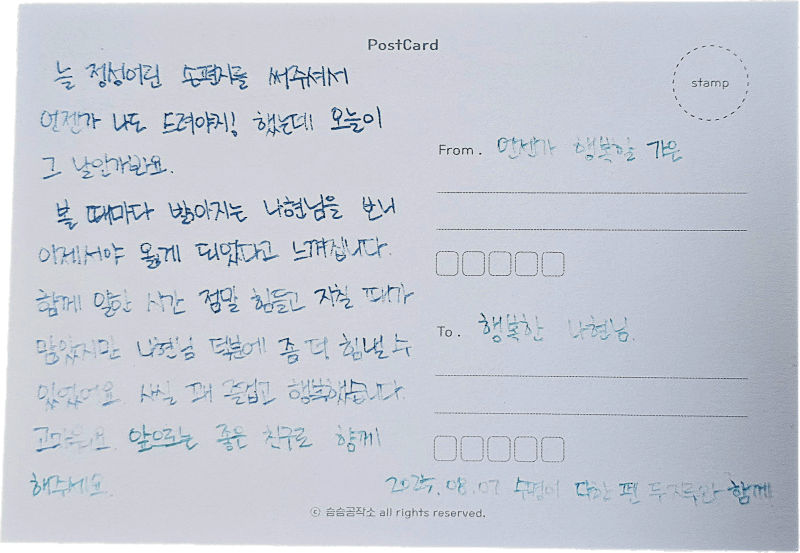 PostCard
늘 정성어린 손편지를 써주셔서
언젠가 나도 드려야지! 했는데 오늘이
그 날인가봐요.
볼 때마다 밝아지는 나현님을 보니
이제서야 옳게 되었다고 느껴집니다.
함께 일한 시간 정말 힘들고 지칠 때가
많았지만 나현님 덕분에 좀 더 힘낼 수
있었어요. 사실 꽤 즐겁고 행복했습니다.
고마워요. 앞으로는 좋은 친구로 함께
해주세요.
stamp
From. 언젠가 행복할 가은
To. 행복한 나현님.
2025.08.07 수명이 다한 펜 두 자루와 함께
ⓒ 슴슴공작소 all rights reserved.